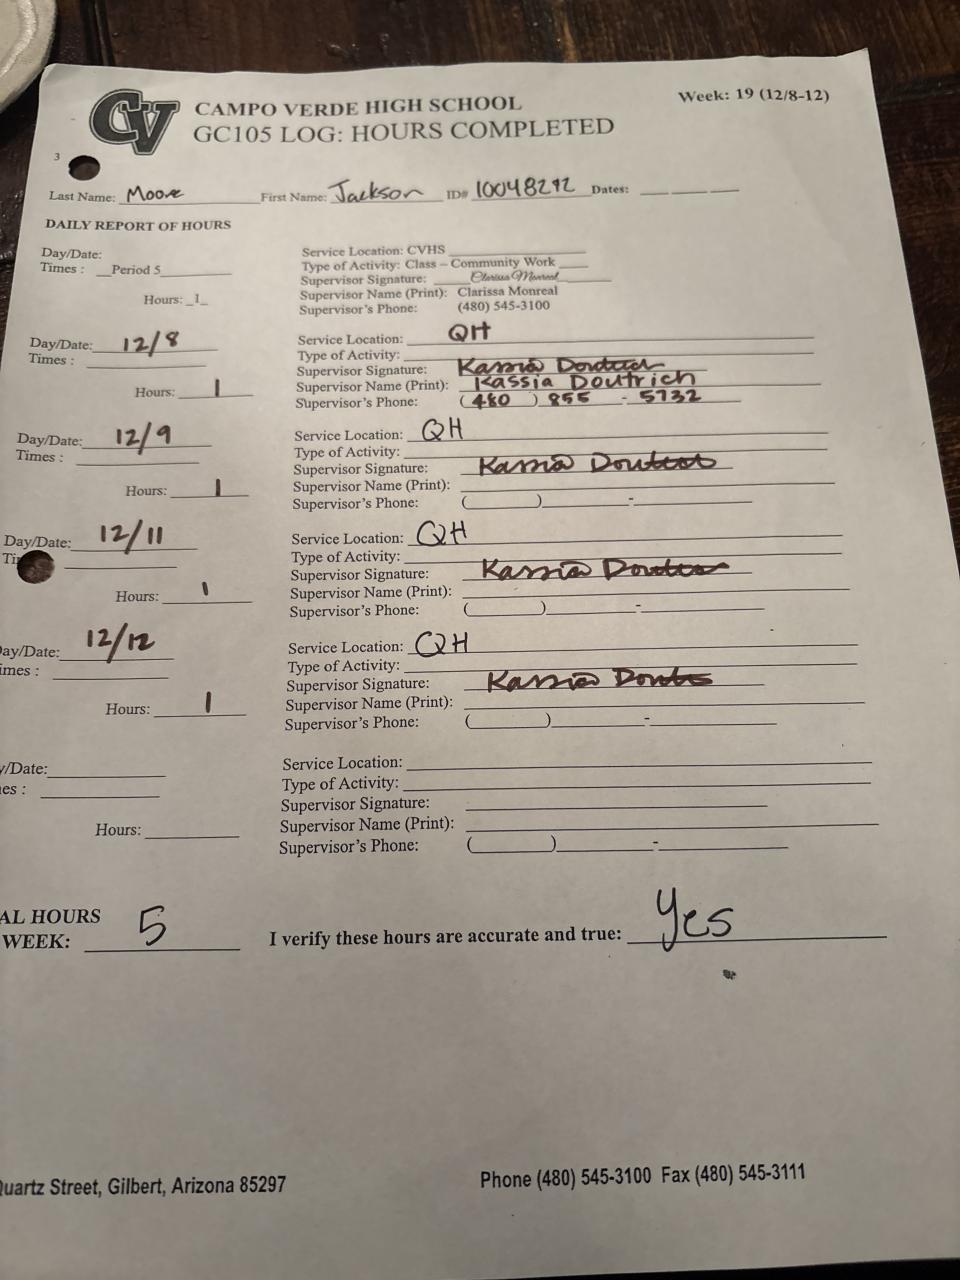 CV
CAMPO VERDE HIGH SCHOOL
Week: 19 (12/8-12)
GC105 LOG: HOURS COMPLETED
3
Last Name: Moore First Name: Jackson ID# 10048292 Dates: ___ ___ ___
DAILY REPORT OF HOURS
Day/Date:
Times : __Period 5
Hours: _1_
Service Location: CVHS
Type of Activity: Class – Community Work
Supervisor Signature: Clarissa Monreal
Supervisor Name (Print): Clarissa Monreal
Supervisor's Phone: (480) 545-3100
Day/Date: 12/8
Times :
Hours: 1
Service Location: QH
Type of Activity:
Supervisor Signature: Kassia Doutrich
Supervisor Name (Print): Kassia Doutrich
Supervisor's Phone: (480) 855 - 5732
Day/Date: 12/9
Times :
Hours: 1
Service Location: QH
Type of Activity:
Supervisor Signature: Kassia Doutrich
Supervisor Name (Print):
Supervisor's Phone: ( ) -
Day/Date: 12/11
Ti
Hours: 1
Service Location: QH
Type of Activity:
Supervisor Signature: Kassia
Supervisor Name (Print):
Supervisor's Phone: ( ) -
ay/Date: 12/12
imes :
Hours: 1
Service Location: QH
Type of Activity:
Supervisor Signature: Kassia
Supervisor Name (Print):
Supervisor's Phone: ( ) -
y/Date:
es :
Hours:
Service Location:
Type of Activity:
Supervisor Signature:
Supervisor Name (Print):
Supervisor's Phone: ( ) -
AL HOURS
WEEK: 5
I verify these hours are accurate and true: Yes
Quartz Street, Gilbert, Arizona 85297
Phone (480) 545-3100 Fax (480) 545-3111